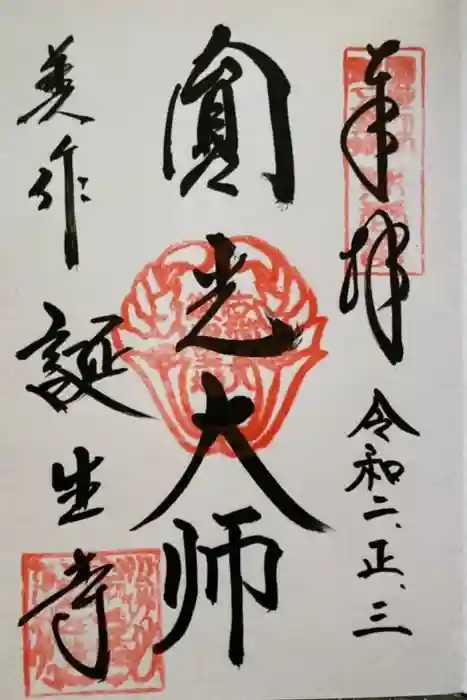 奉拝
令和二、正、三
圓光大师
美作
誕生寺